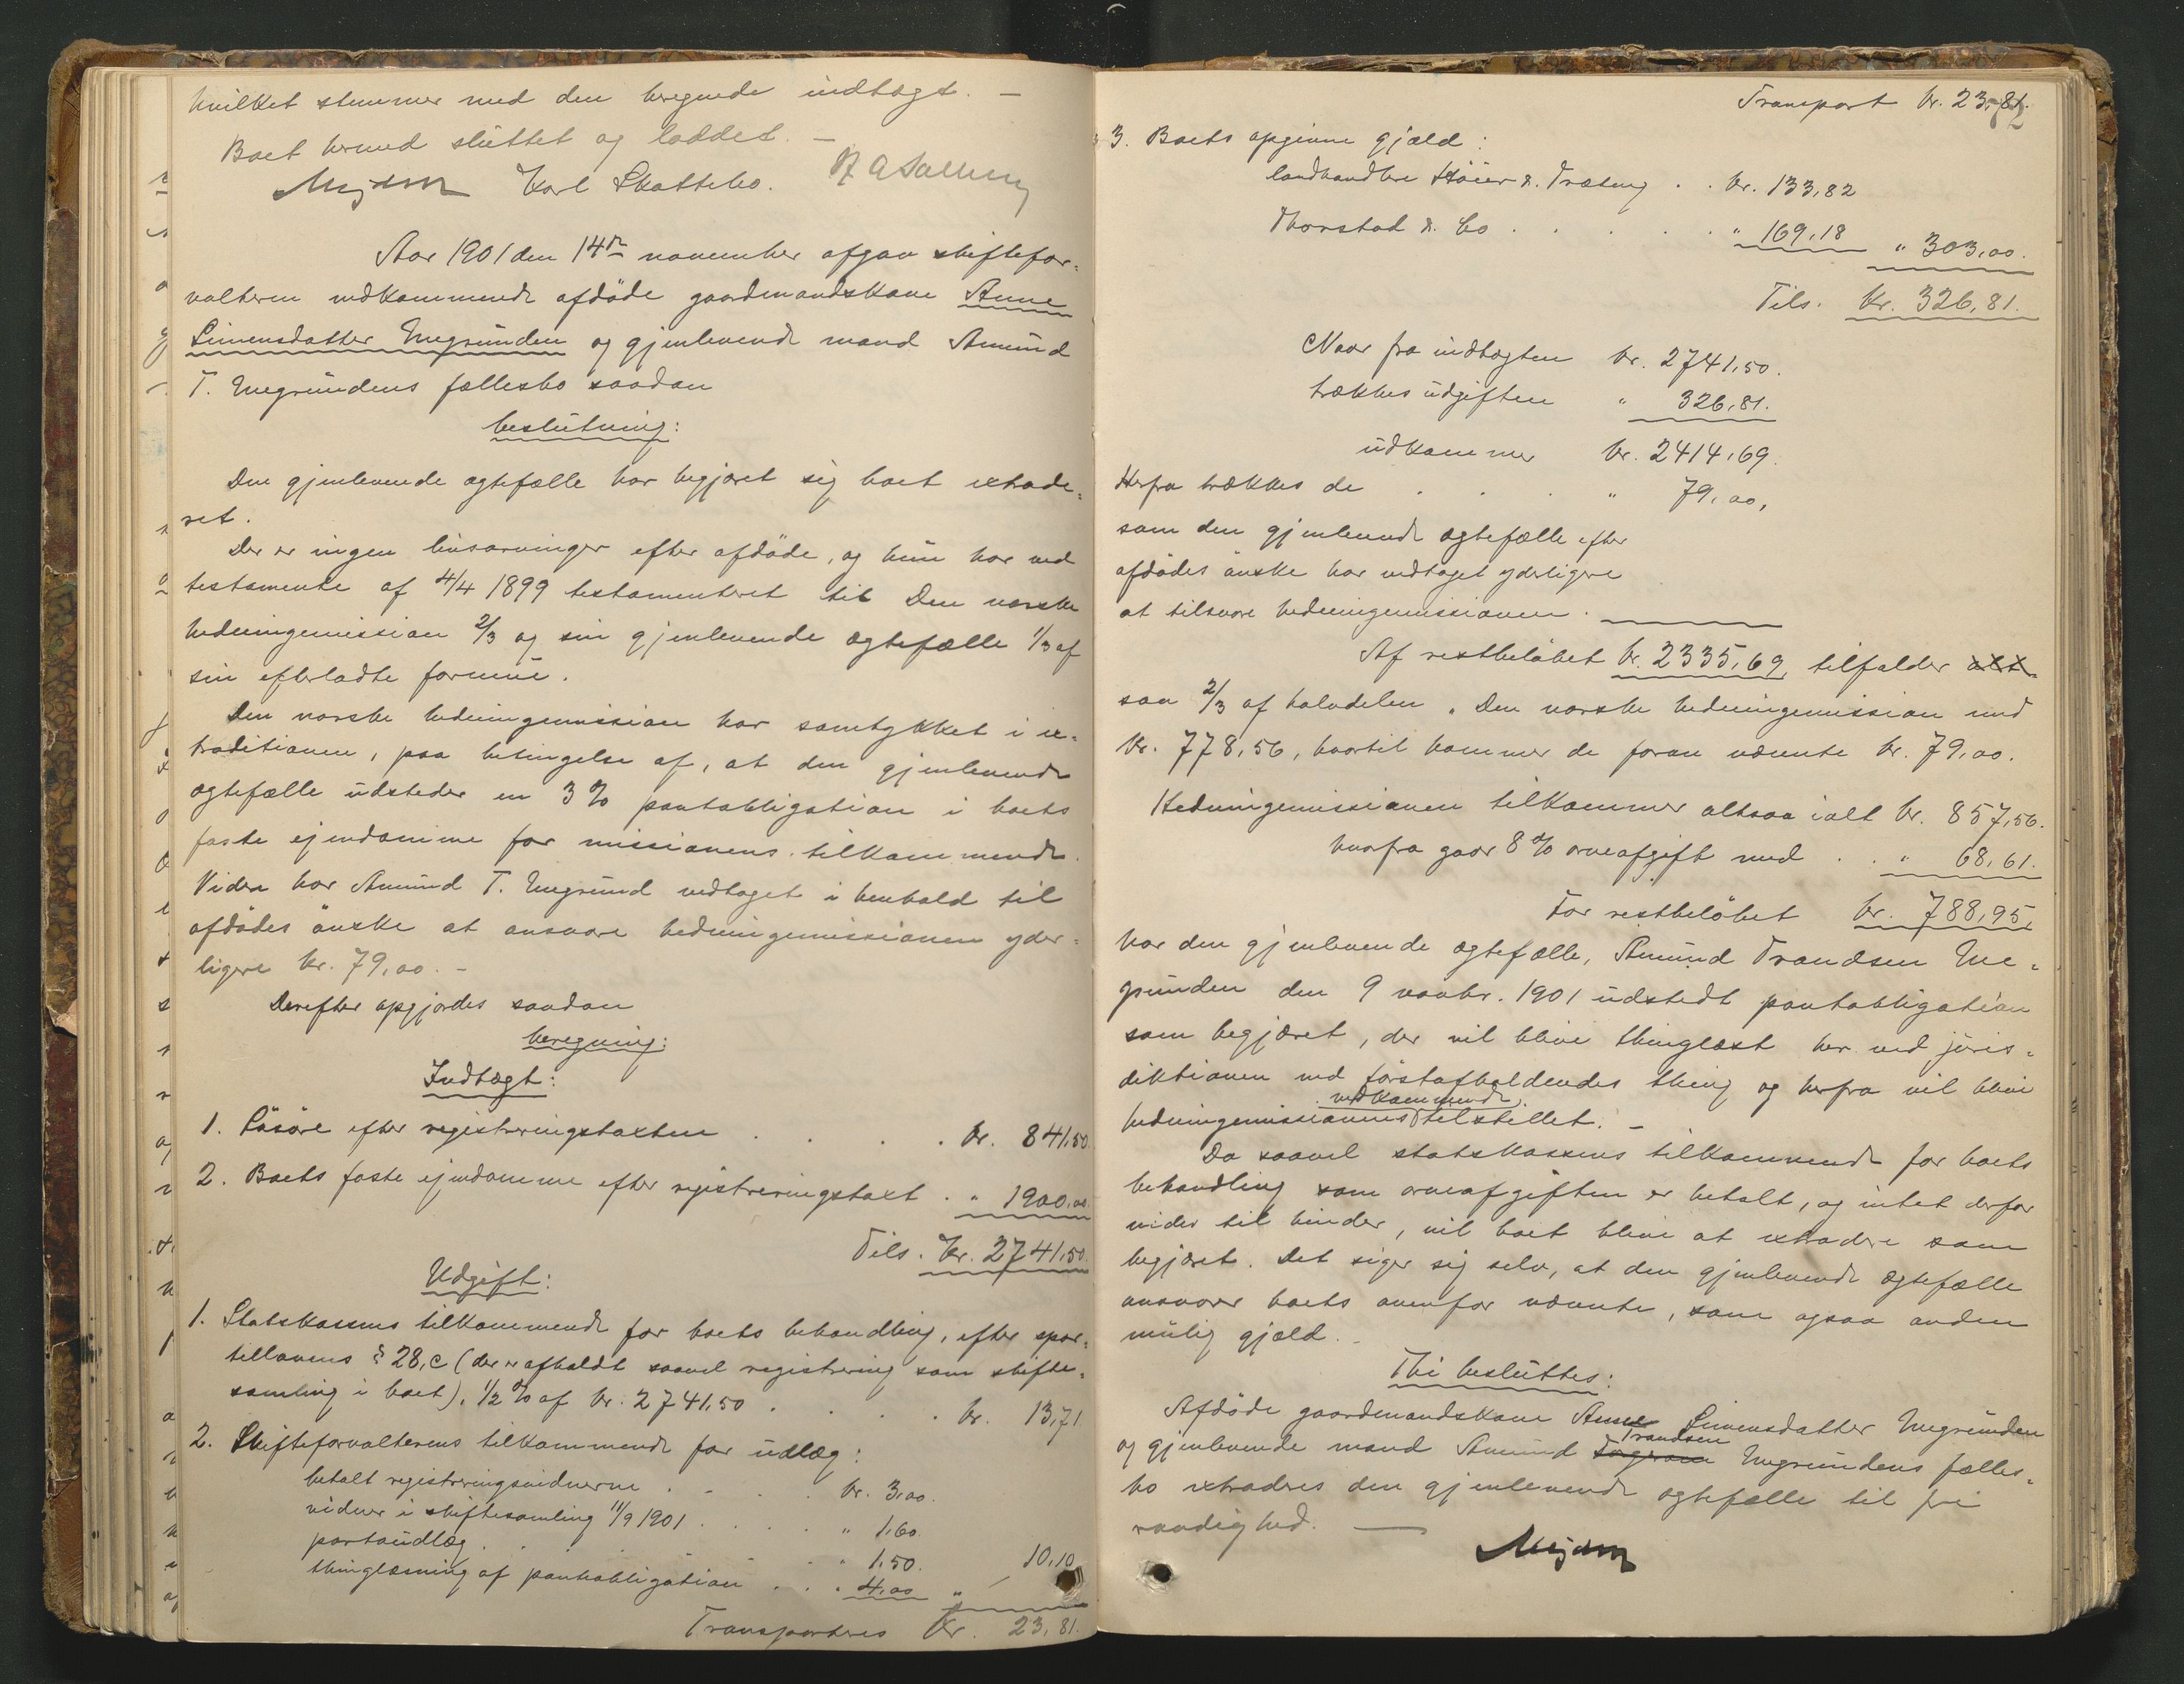 hvilket stemmer med den beregnede indtægt. —
Boet hermed sluttet og loddet. —
Karl Skattebo.
Aar 1901 den 14de november afgav skiftefor-
valteren vedkommende afdøde gaardmandskone Anne
Simensdatter Megrunden og gjenlevende mand Amund
T. Megrundens fællesbo saadan
beslutning:
Den gjenlevende ægtefælle har begjæret sig boet extrade-
ret.
Der er ingen livsarvinger efter afdøde, og hun har ved
testamente af 4/4 1899 testamenteret til Den norske
hedningemission 2/3 og sin gjenlevende ægtefælle 1/3 af
sin efterladte formue.
Den norske hedningemission har samtykket i ex-
traditionen, paa betingelse af, at den gjenlevende
ægtefælle udsteder en 3 % pantobligation i boets
faste ejendomme for missionens tilkommende.
Videre har Amund T. Megrund vedtaget i henhold til
afdødes ønske at ansvare hedningemissionen yder-
ligere kr. 79,00. —
Derefter opgjordes saadan
beregning:
Indtægt:
1. Løsøre efter registreringstaxten . . . . kr. 841,50
2. Boets faste ejendomme efter registreringstaxt . " 1900,00
Tils. kr. 2741,50
Udgift:
1. Statskassens tilkommende for boets behandling, efter spor-
tellovens § 28, c (der er afholdt saavel registrering som skifte-
samling i boet), 1/2 % af kr. 2741,50 . . . . kr. 13,71
2. Skifteforvalterens tilkommende for udlæg:
betalt registreringsvidnerne . . . . kr. 3,00.
vidner i skiftesamling 11/9 1901 . . . . " 1,60.
portoudlæg . . . " 1,50.
thinglæsning af pantobligation . . . " 4,00 " 10,10
Transporteres kr. 23,81.
Transport kr. 23,81.
3. Boets opgivne gjæld:
landhandlere Høier & Træteng . . kr. 133,82
Thorstad & Co . . . . . " 169,18 " 303,00.
Tils. kr. 326,81.
Naar fra indtægten kr. 2741,50.
trækkes udgiften " 326,81.
udkommer kr. 2414,69.
Herfra trækkes de . . . " 79,00,
som den gjenlevende ægtefælle efter
afdødes ønske har vedtaget yderligere
at tilsvare hedningemissionen.
Af restbeløbet kr. 2335,69, tilfalder alt-
saa 2/3 af halvdelen „Den norske hedningemission med
kr. 778,56, hvortil kommer de foran nævnte kr. 79,00.
Hedningemissionen tilkommer altsaa ialt kr. 857,56.
hvorfra gaar 8 % arveafgift med . . " 68,61.
For restbeløbet kr. 788,95,
har den gjenlevende ægtefælle, Amund Trandsen Me-
grunden den 9 novbr. 1901 udstedt pantobligation
som begjæret, der vil blive thinglæst her ved juris-
diktionen ved førstafholdendes thing og herfra vil blive
vedkommende
hedningemissionens tilstillet. —
Da saavel statskassens tilkommende for boets
behandling som arveafgiften er betalt, og intet derfor
vides til hinder, vil boet blive at extradere som
begjæret. Det siger sig selv, at den gjenlevende ægtefælle
ansvarer boets ovenfor nævnte, som ogsaa anden
mulig gjæld. —
Thi besluttes:
Afdøde gaardmandskone Anne Simensdatter Megrunden
Trandsen
og gjenlevende mand Amund Megrundens fælles-
bo extraderes den gjenlevende ægtefælle til fri
raadighed. —